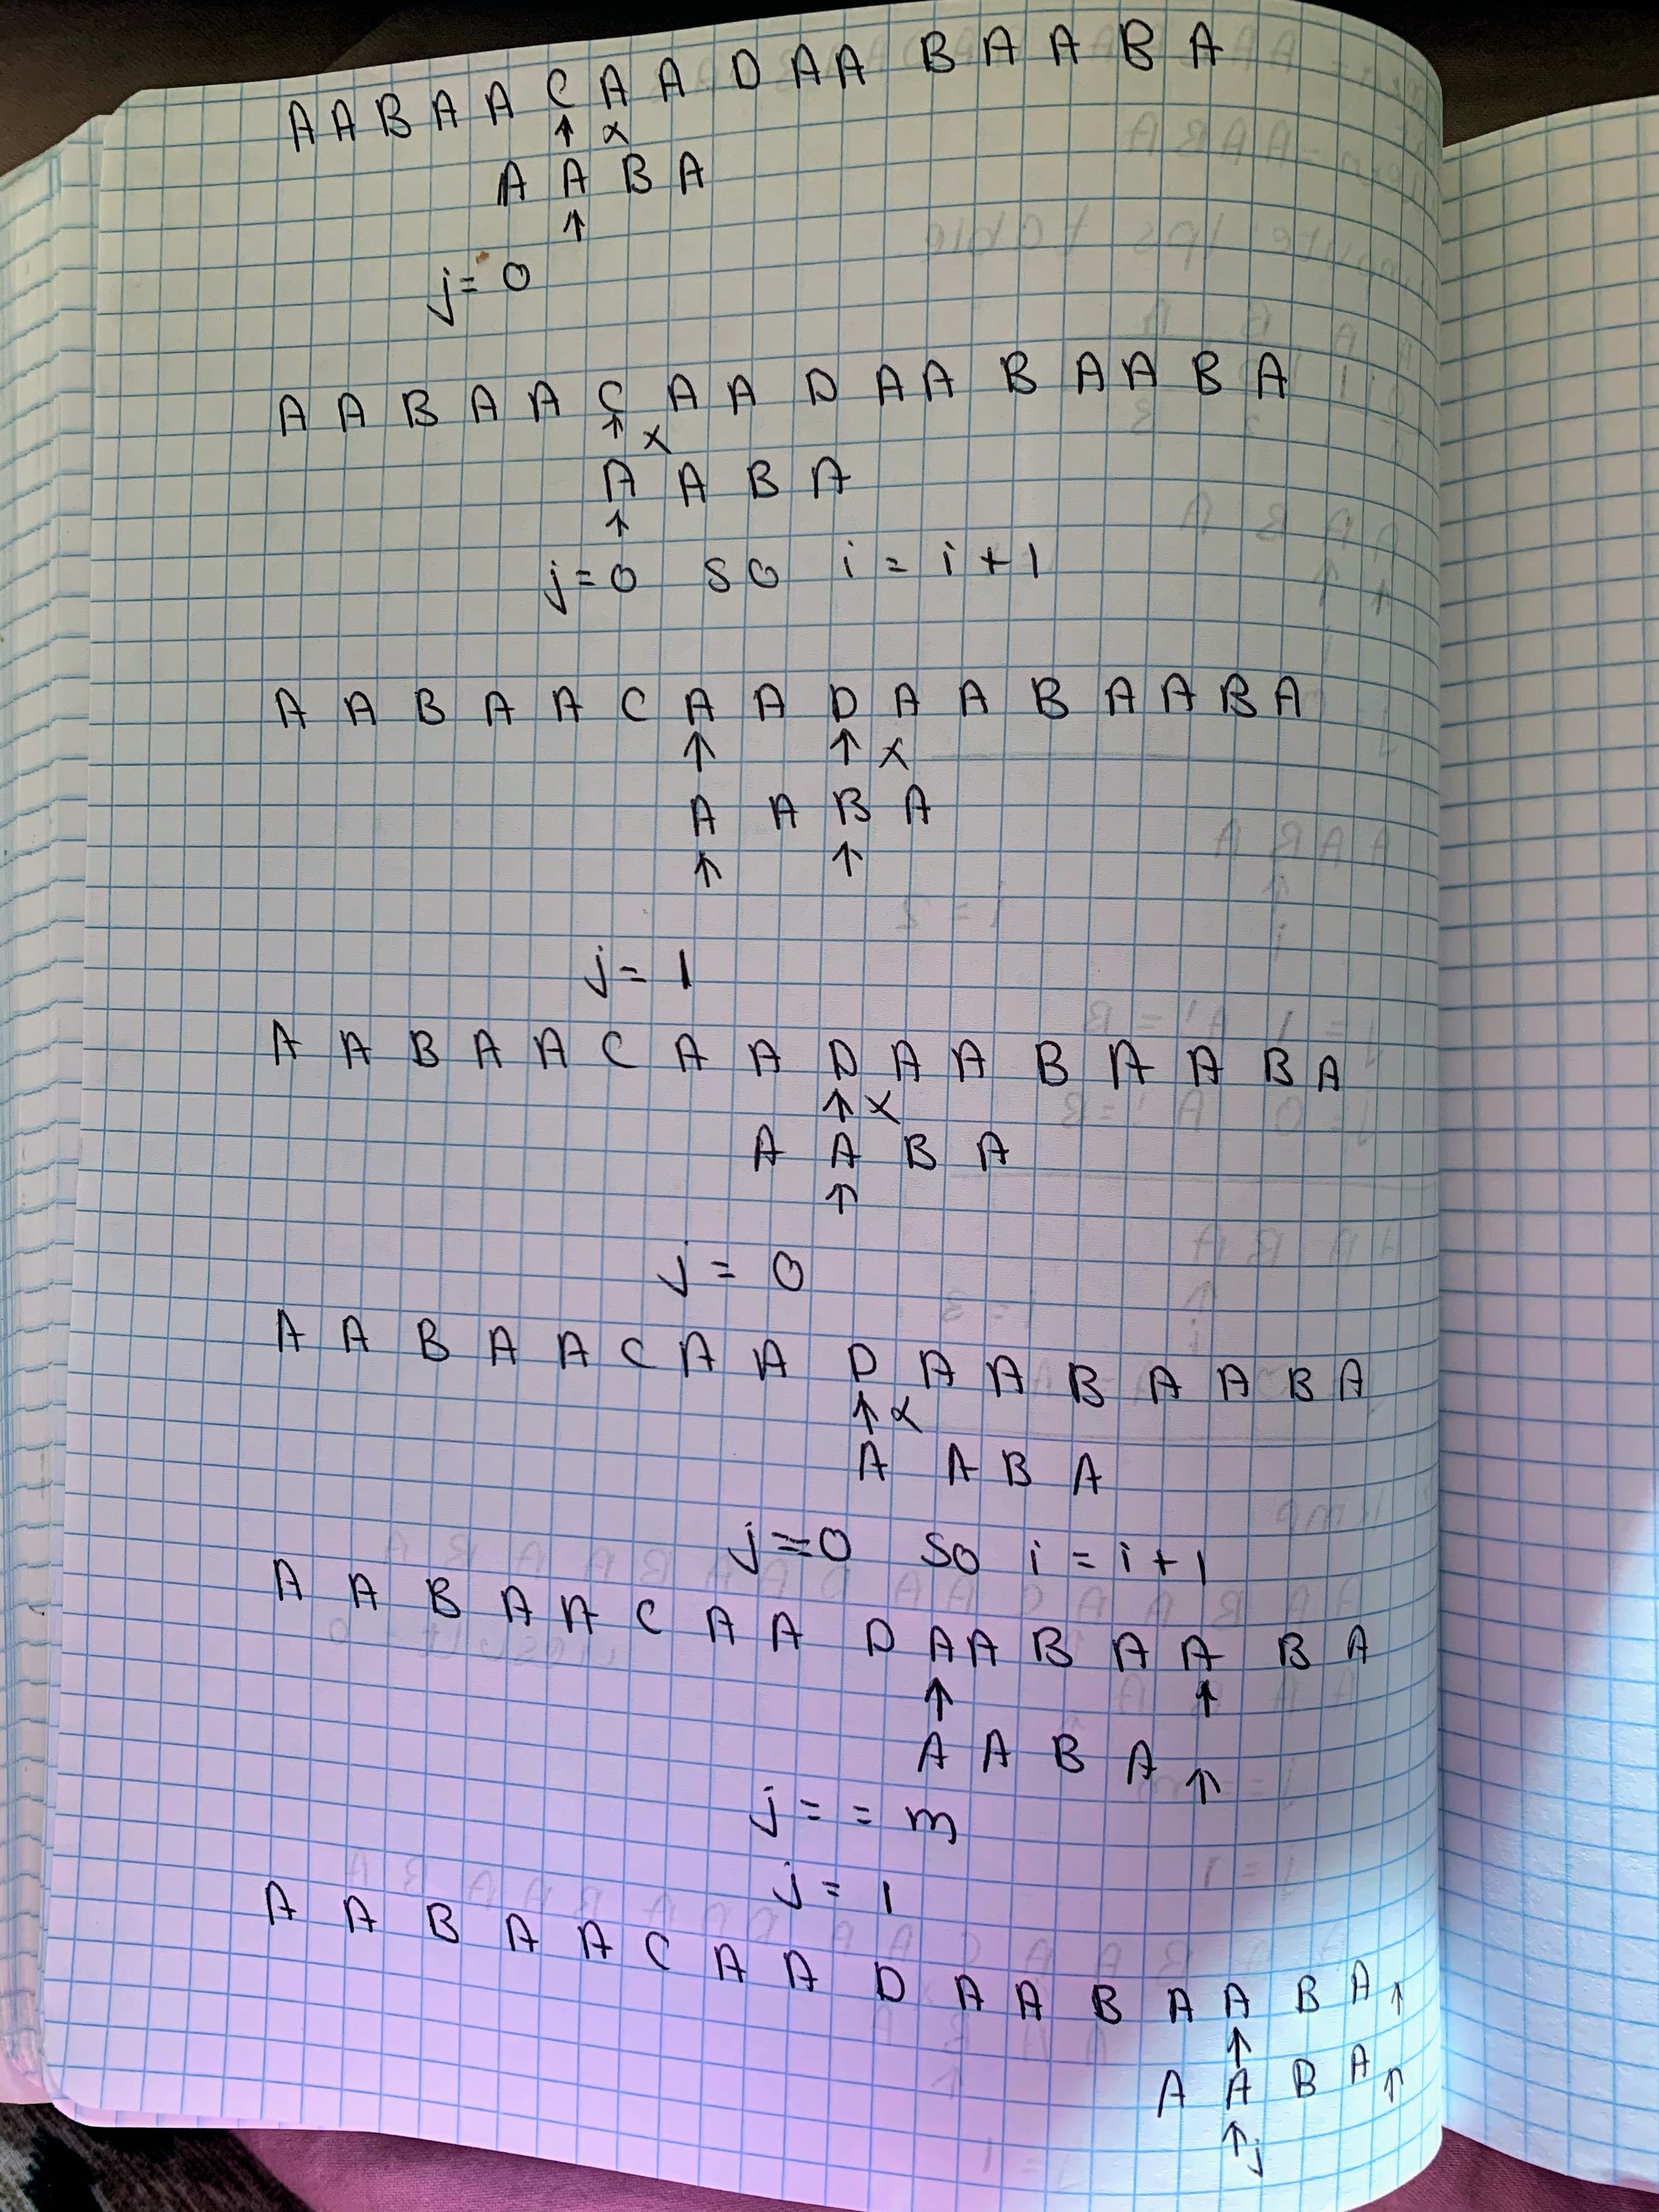 A A B A A C A A D A A B A A B A
↑ x
A A B A
↑
j = 0
A A B A A C A A D A A B A A B A
↑ x
A A B A
↑
j = 0 so i = i + 1
A A B A A C A A D A A B A A B A
↑ ↑ x
A A B A
↑ ↑
j = 1
A A B A A C A A D A A B A A B A
↑ x
A A B A
↑
j = 0
A A B A A C A A D A A B A A B A
↑ x
A A B A
j = 0 so i = i + 1
A A B A A C A A D A A B A A B A
↑ ↑
A A B A ↑
j = = m
j = 1
A A B A A C A A D A A B A A B A ↑
↑
A A B A ↑
↑ j